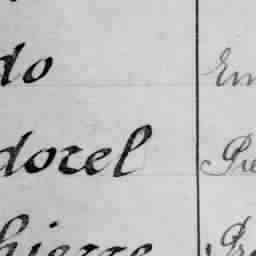 do Em
dorel Pre
hierre Pr